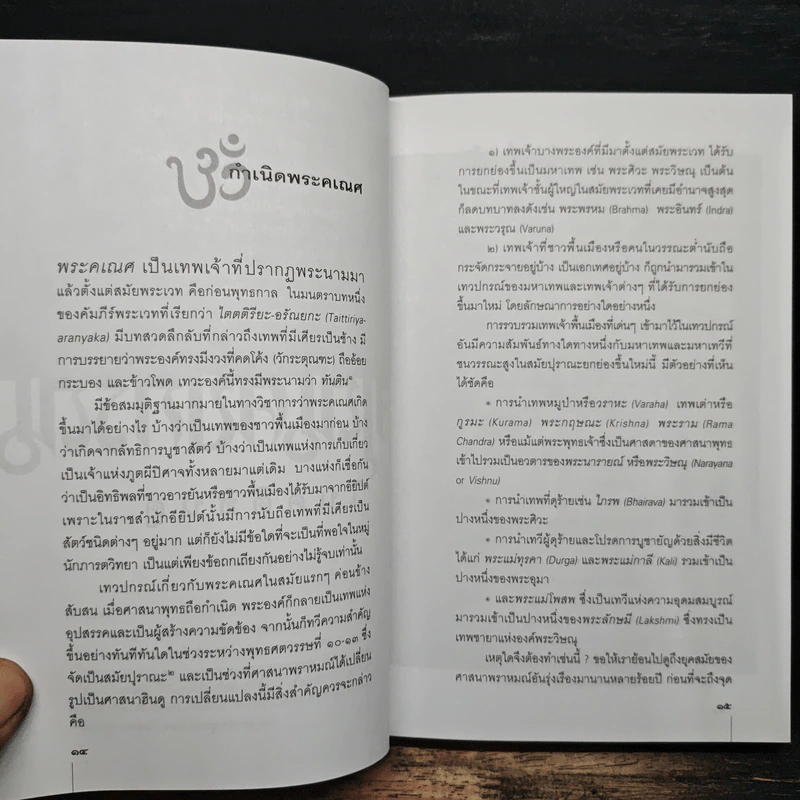 กำเนิดพระคเณศ
พระคเณศ เป็นเทพเจ้าที่ปรากฏพระนามมา
แล้วตั้งแต่สมัยพระเวท คือก่อนพุทธกาล ในมนตราบทหนึ่ง
ของคัมภีร์พระเวทที่เรียกว่า ไตตติริยะ-อรัณยกะ (Taittiriya-
aranyaka) มีบทสวดลึกลับที่กล่าวถึงเทพที่มีเศียรเป็นช้าง มี
การบรรยายว่าพระองค์ทรงมีงวงที่คดโค้ง (วักระตุณฑะ) ถืออ้อย
กระบอง และข้าวโพด เทวะองค์นี้ทรงมีพระนามว่า ทันติน๑
มีข้อสมมุติฐานมากมายในทางวิชาการว่าพระคเณศเกิด
ขึ้นมาได้อย่างไร บ้างว่าเป็นเทพของชาวพื้นเมืองมาก่อน บ้าง
ว่าเกิดจากลัทธิการบูชาสัตว์ บ้างว่าเป็นเทพแห่งการเก็บเกี่ยว
เป็นเจ้าแห่งภูตผีปีศาจทั้งหลายมาแต่เดิม บางแห่งก็เชื่อกัน
ว่าเป็นอิทธิพลที่ชาวอารยันหรือชาวพื้นเมืองได้รับมาจากอียิปต์
เพราะในราชสำนักอียิปต์นั้นมีการนับถือเทพที่มีเศียรเป็น
สัตว์ชนิดต่างๆ อยู่มาก แต่ก็ยังไม่มีข้อใดที่จะเป็นที่พอใจในหมู่
นักภารตวิทยา เป็นแต่เพียงข้อถกเถียงกันอย่างไม่รู้จบเท่านั้น
เทวปกรณ์เกี่ยวกับพระคเณศในสมัยแรกๆ ค่อนข้าง
สับสน เมื่อศาสนาพุทธถือกำเนิด พระองค์ก็กลายเป็นเทพแห่ง
อุปสรรคและเป็นผู้สร้างความขัดข้อง จากนั้นก็ทวีความสำคัญ
ขึ้นอย่างทันทีทันใดในช่วงระหว่างพุทธศตวรรษที่ ๑๐-๑๓ ซึ่ง
จัดเป็นสมัยปุราณะ๒ และเป็นช่วงที่ศาสนาพราหมณ์ได้เปลี่ยน
รูปเป็นศาสนาฮินดู การเปลี่ยนแปลงนี้มีสิ่งสำคัญควรจะกล่าว
คือ
๑๔
๑) เทพเจ้าบางพระองค์ที่มีมาตั้งแต่สมัยพระเวท ได้รับ
การยกย่องขึ้นเป็นมหาเทพ เช่น พระศิวะ พระวิษณุ เป็นต้น
ในขณะที่เทพเจ้าชั้นผู้ใหญ่ในสมัยพระเวทที่เคยมีอำนาจสูงสุด
ก็ลดบทบาทลงดังเช่น พระพรหม (Brahma) พระอินทร์ (Indra)
และพระวรุณ (Varuna)
๒) เทพเจ้าที่ชาวพื้นเมืองหรือคนในวรรณะต่ำนับถือ
กระจัดกระจายอยู่บ้าง เป็นเอกเทศอยู่บ้าง ก็ถูกนำมารวมเข้าใน
เทวปกรณ์ของมหาเทพและเทพเจ้าต่างๆ ที่ได้รับการยกย่อง
ขึ้นมาใหม่ โดยลักษณาการอย่างใดอย่างหนึ่ง
การรวบรวมเทพเจ้าพื้นเมืองที่เด่นๆ เข้ามาไว้ในเทวปกรณ์
อันมีความสัมพันธ์ทางใดทางหนึ่งกับมหาเทพและมหาเทวีที่
ชนวรรณะสูงในสมัยปุราณะยกย่องขึ้นใหม่นี้ มีตัวอย่างที่เห็น
ได้ชัดคือ
* การนำเทพหมูป่าหรือวราหะ (Varaha) เทพเต่าหรือ
กูรมะ (Kurama) พระกฤษณะ (Krishna) พระราม (Rama
Chandra) หรือแม้แต่พระพุทธเจ้าซึ่งเป็นศาสดาของศาสนาพุทธ
เข้าไปรวมเป็นอวตารของพระนารายณ์ หรือพระวิษณุ (Narayana
or Vishnu)
* การนำเทพที่ดุร้ายเช่น ไภรพ (Bhairava) มารวมเข้าเป็น
ปางหนึ่งของพระศิวะ
* การนำเทวีผู้ดุร้ายและโปรดการบูชายัญด้วยสิ่งมีชีวิต
ได้แก่ พระแม่ทุรคา (Durga) และพระแม่กาลี (Kali) รวมเข้าเป็น
ปางหนึ่งของพระอุมา
* และพระแม่โพสพ ซึ่งเป็นเทวีแห่งความอุดมสมบูรณ์
มารวมเข้าเป็นปางหนึ่งของพระลักษมี (Lakshmi) ซึ่งทรงเป็น
เทพชายาแห่งองค์พระวิษณุ
เหตุใดจึงต้องทำเช่นนี้ ? ขอให้เราย้อนไปดูถึงยุคสมัยของ
ศาสนาพราหมณ์อันรุ่งเรืองมานานหลายร้อยปี ก่อนที่จะถึงจุด
๑๕